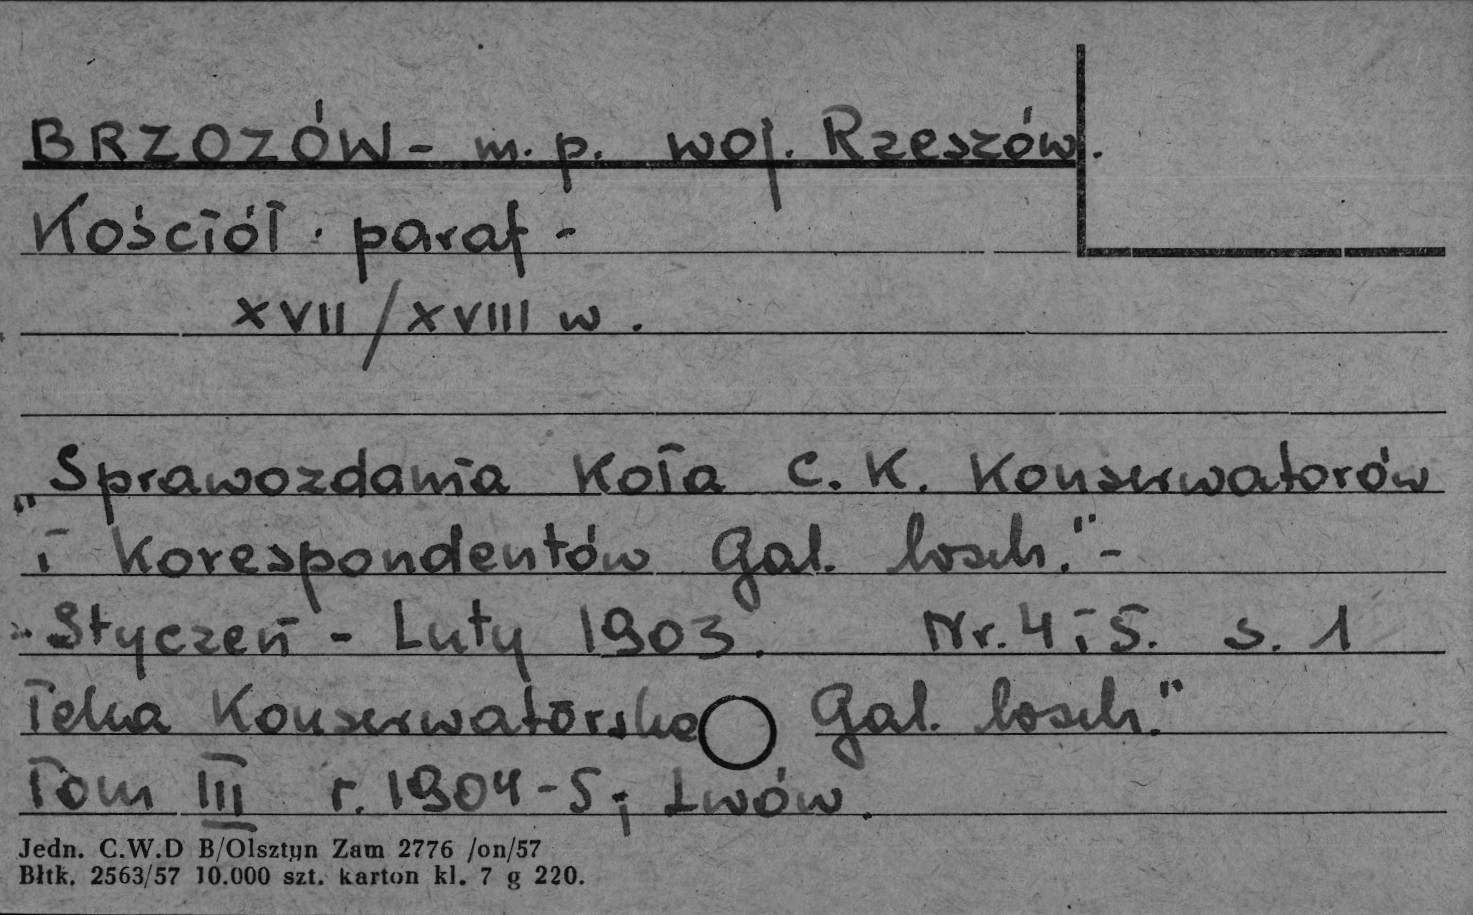 BRZOZÓW - m. p. woj. Rzeszów.
Kościół paraf -
XVII/XVIII w.
„Sprawozdania Koła C. K. Konserwatorów
i Korespondentów Gal. wsch." -
Styczeń - Luty 1903. Nr. 4 i 5. s. 1
Teka Konserwatorska Gal. wsch."
Tom III r. 1904-5; Lwów.
Jedn. C.W.D B/Olsztyn Zam 2776 /on/57
Błtk. 2563/57 10.000 szt. karton kl. 7 g 220.